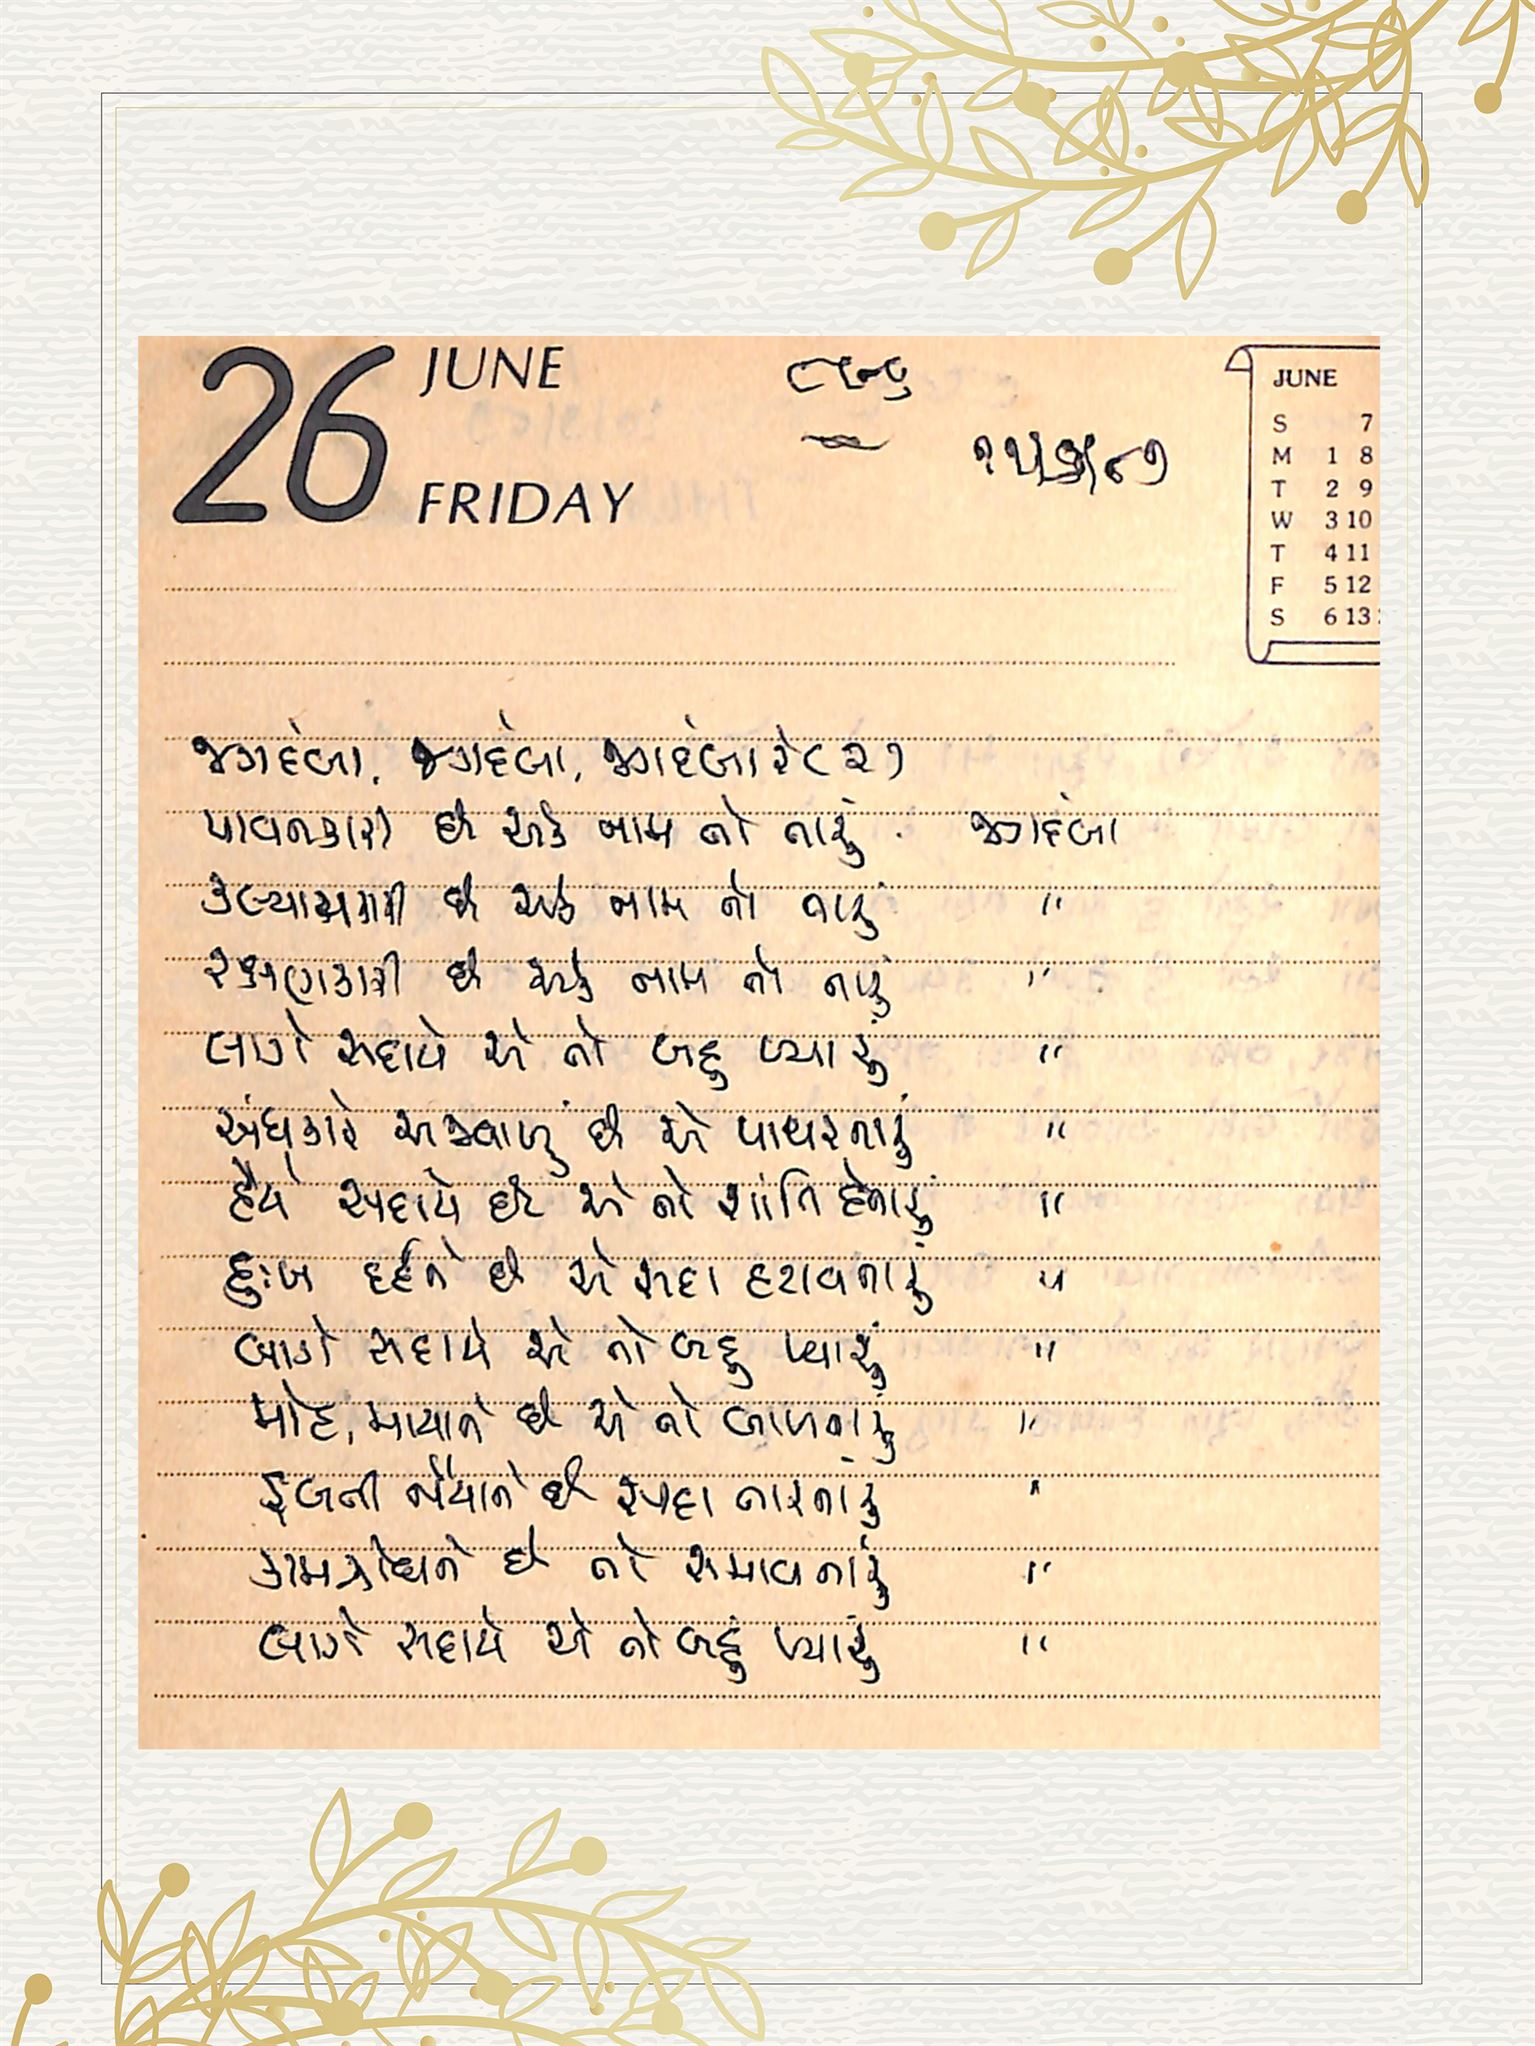 26 JUNE
FRIDAY
JUNE
S 7
M 1 8
T 2 9
W 3 10
T 4 11
F 5 12
S 6 13
જગદંબા, જગદંબા, જગદંબા રે (૨)
પાવનકારી છે એક નામ તો તારું . જગદંબા
કલ્યાણકારી છે એક નામ તો તારું "
રક્ષણકારી છે એક નામ તો તારું "
લાગે સદાયે એ તો બહુ પ્યારું "
અંધકારે અજવાળું છે એ પાથરનારું "
હૈયે સદાયે છે એ તો શાંતિ દેનારું "
દુઃખ દર્દને છે એ સદા હટાવનારું "
લાગે સદાયે એ તો બહુ પ્યારું "
મોહ, માયાને છે એ તો બાળનારું "
ડૂબતી નૈયાને છે સદા તારનારું "
કામક્રોધને છે તો સમાવનારું "
લાગે સદાયે એ તો બહું પ્યારું "